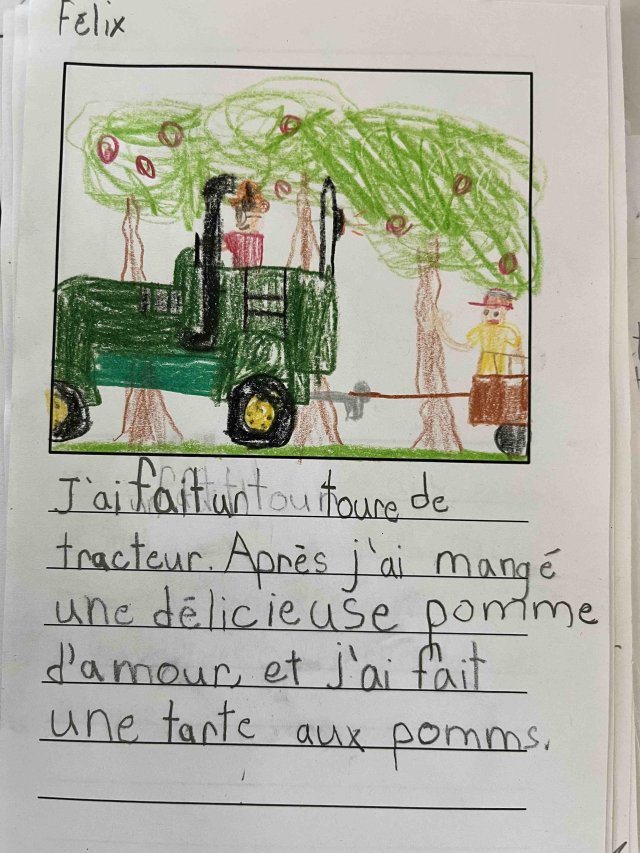 Félix
J'ai fait un toure de
tracteur. Après j'ai mangé
une délicieuse pomme
d'amour, et j'ai fait
une tarte aux pomms.